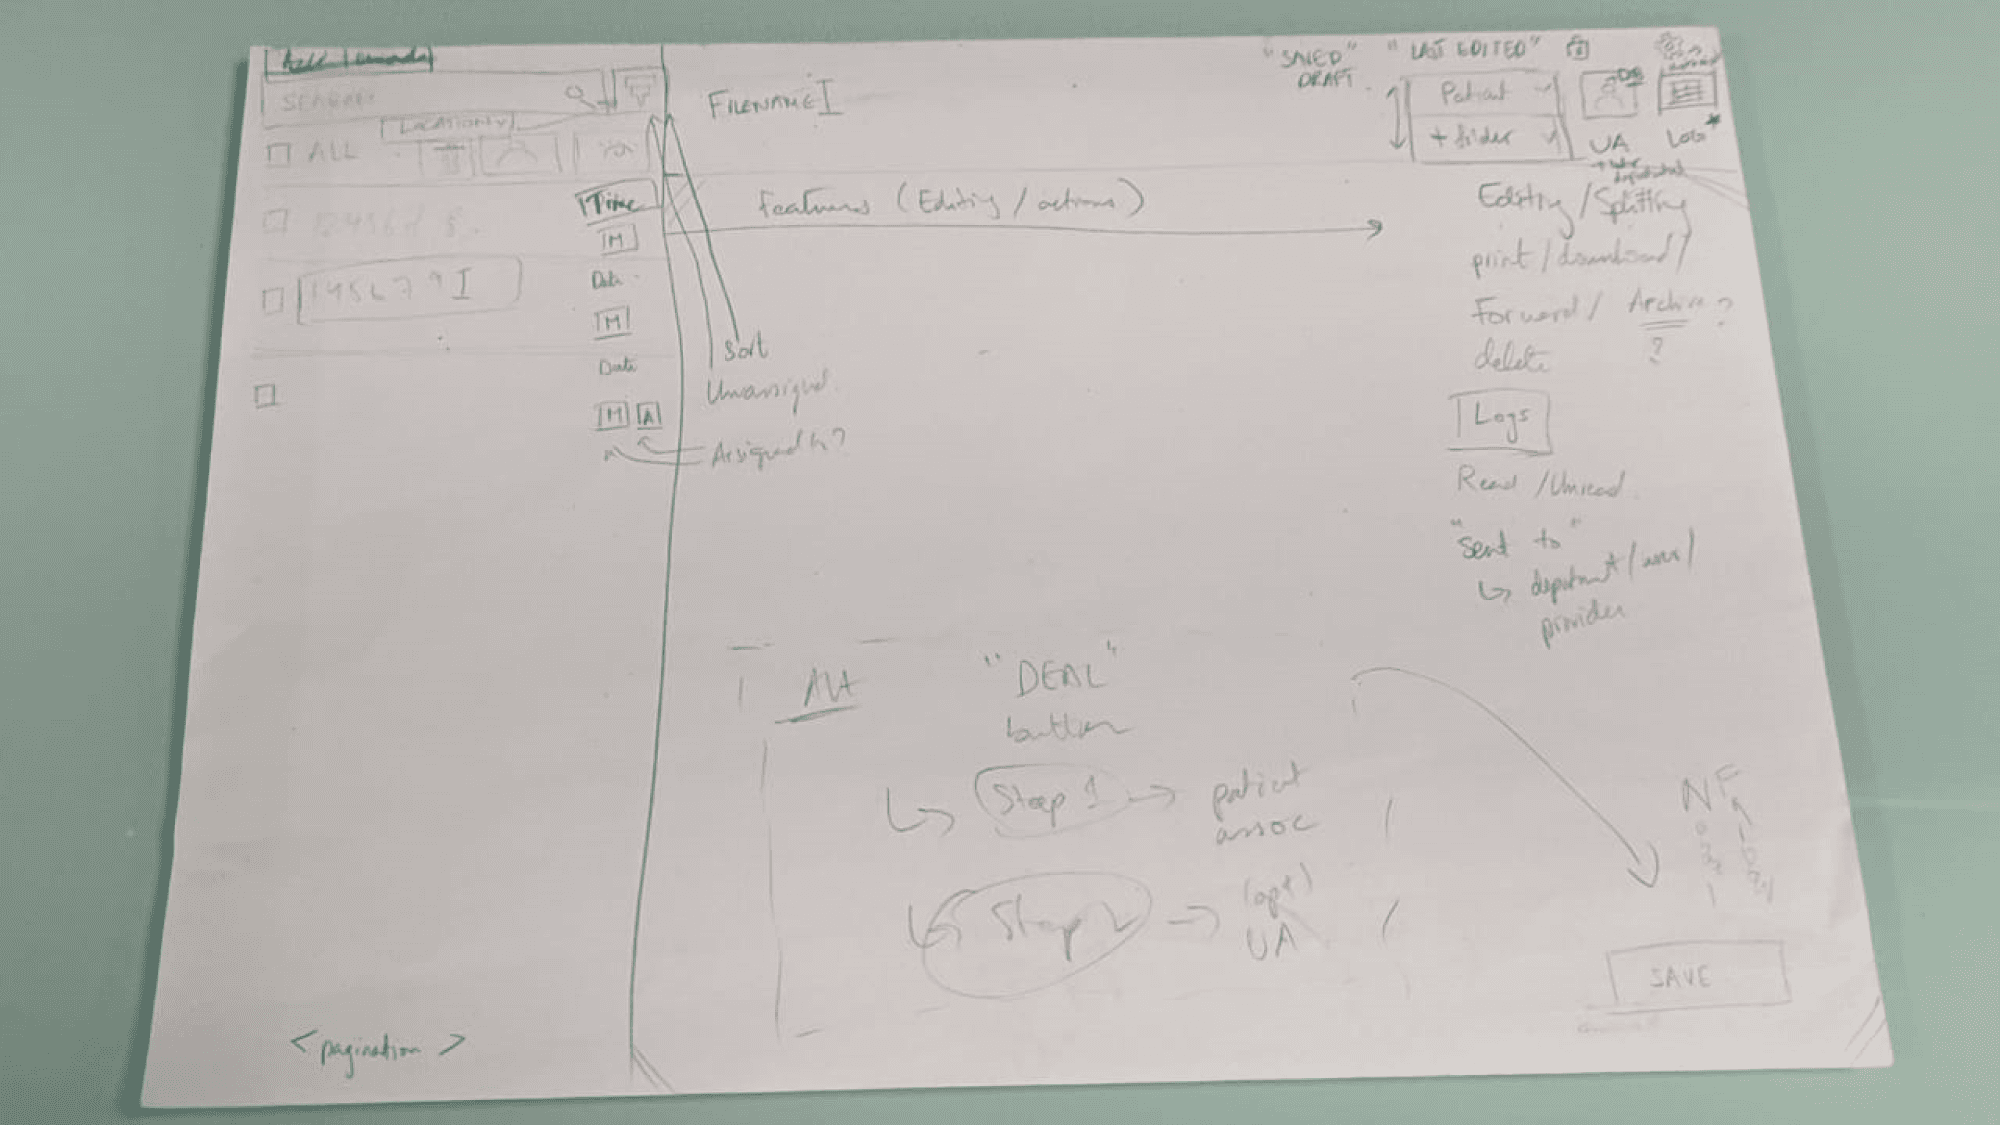 SEARCH
LOCATION
ALL
Time
M
Date
M
Date
M A
< pagination >
FILENAME
"SAVED"
DRAFT
"LAST EDITED"
Patient
+ folder
UA
LOG
Features (Editing / actions)
Sort
Unassigned
Assigned to?
Editing / Splitting
print / download /
Forward / Archive ?
delete
?
Logs
Read / Unread
"sent to"
department / user /
provider
Alt
"DEAL"
button
Step 1 → patient
assoc
Step 2 → (opt)
UA
NF
SAVE